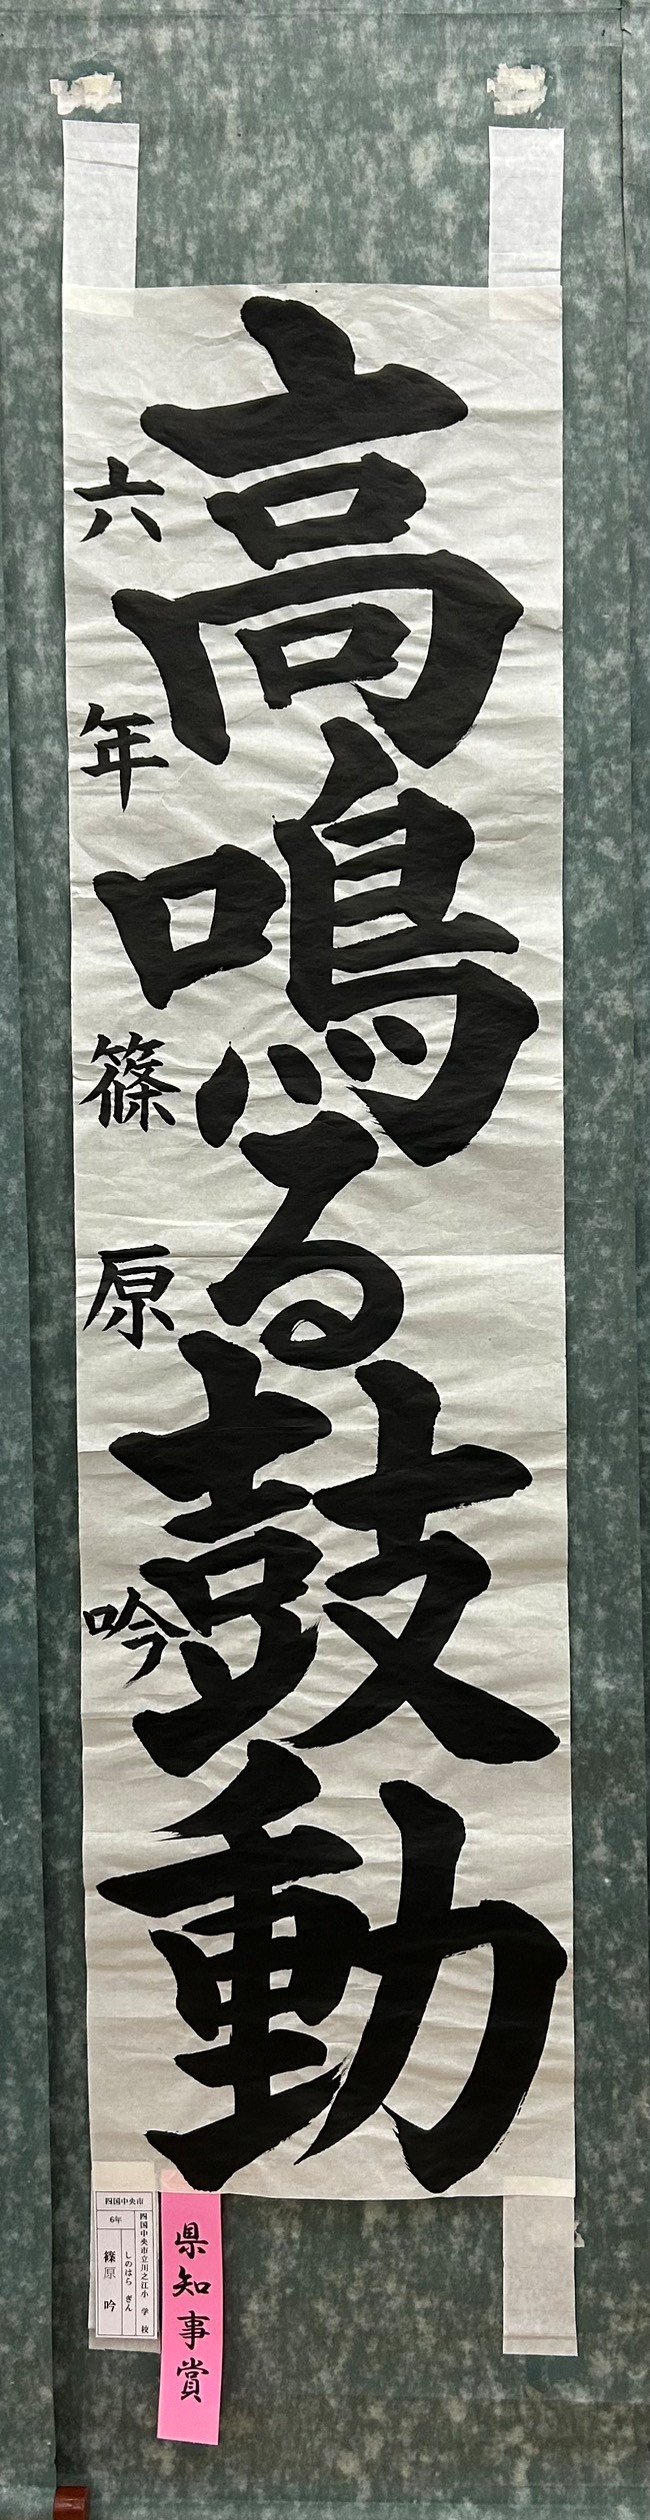 高鳴る鼓動
六年 篠原 吟
四国中央市
四国中央市立川之江小 学校
6年
しのはら ぎん
篠原 吟
県知事賞